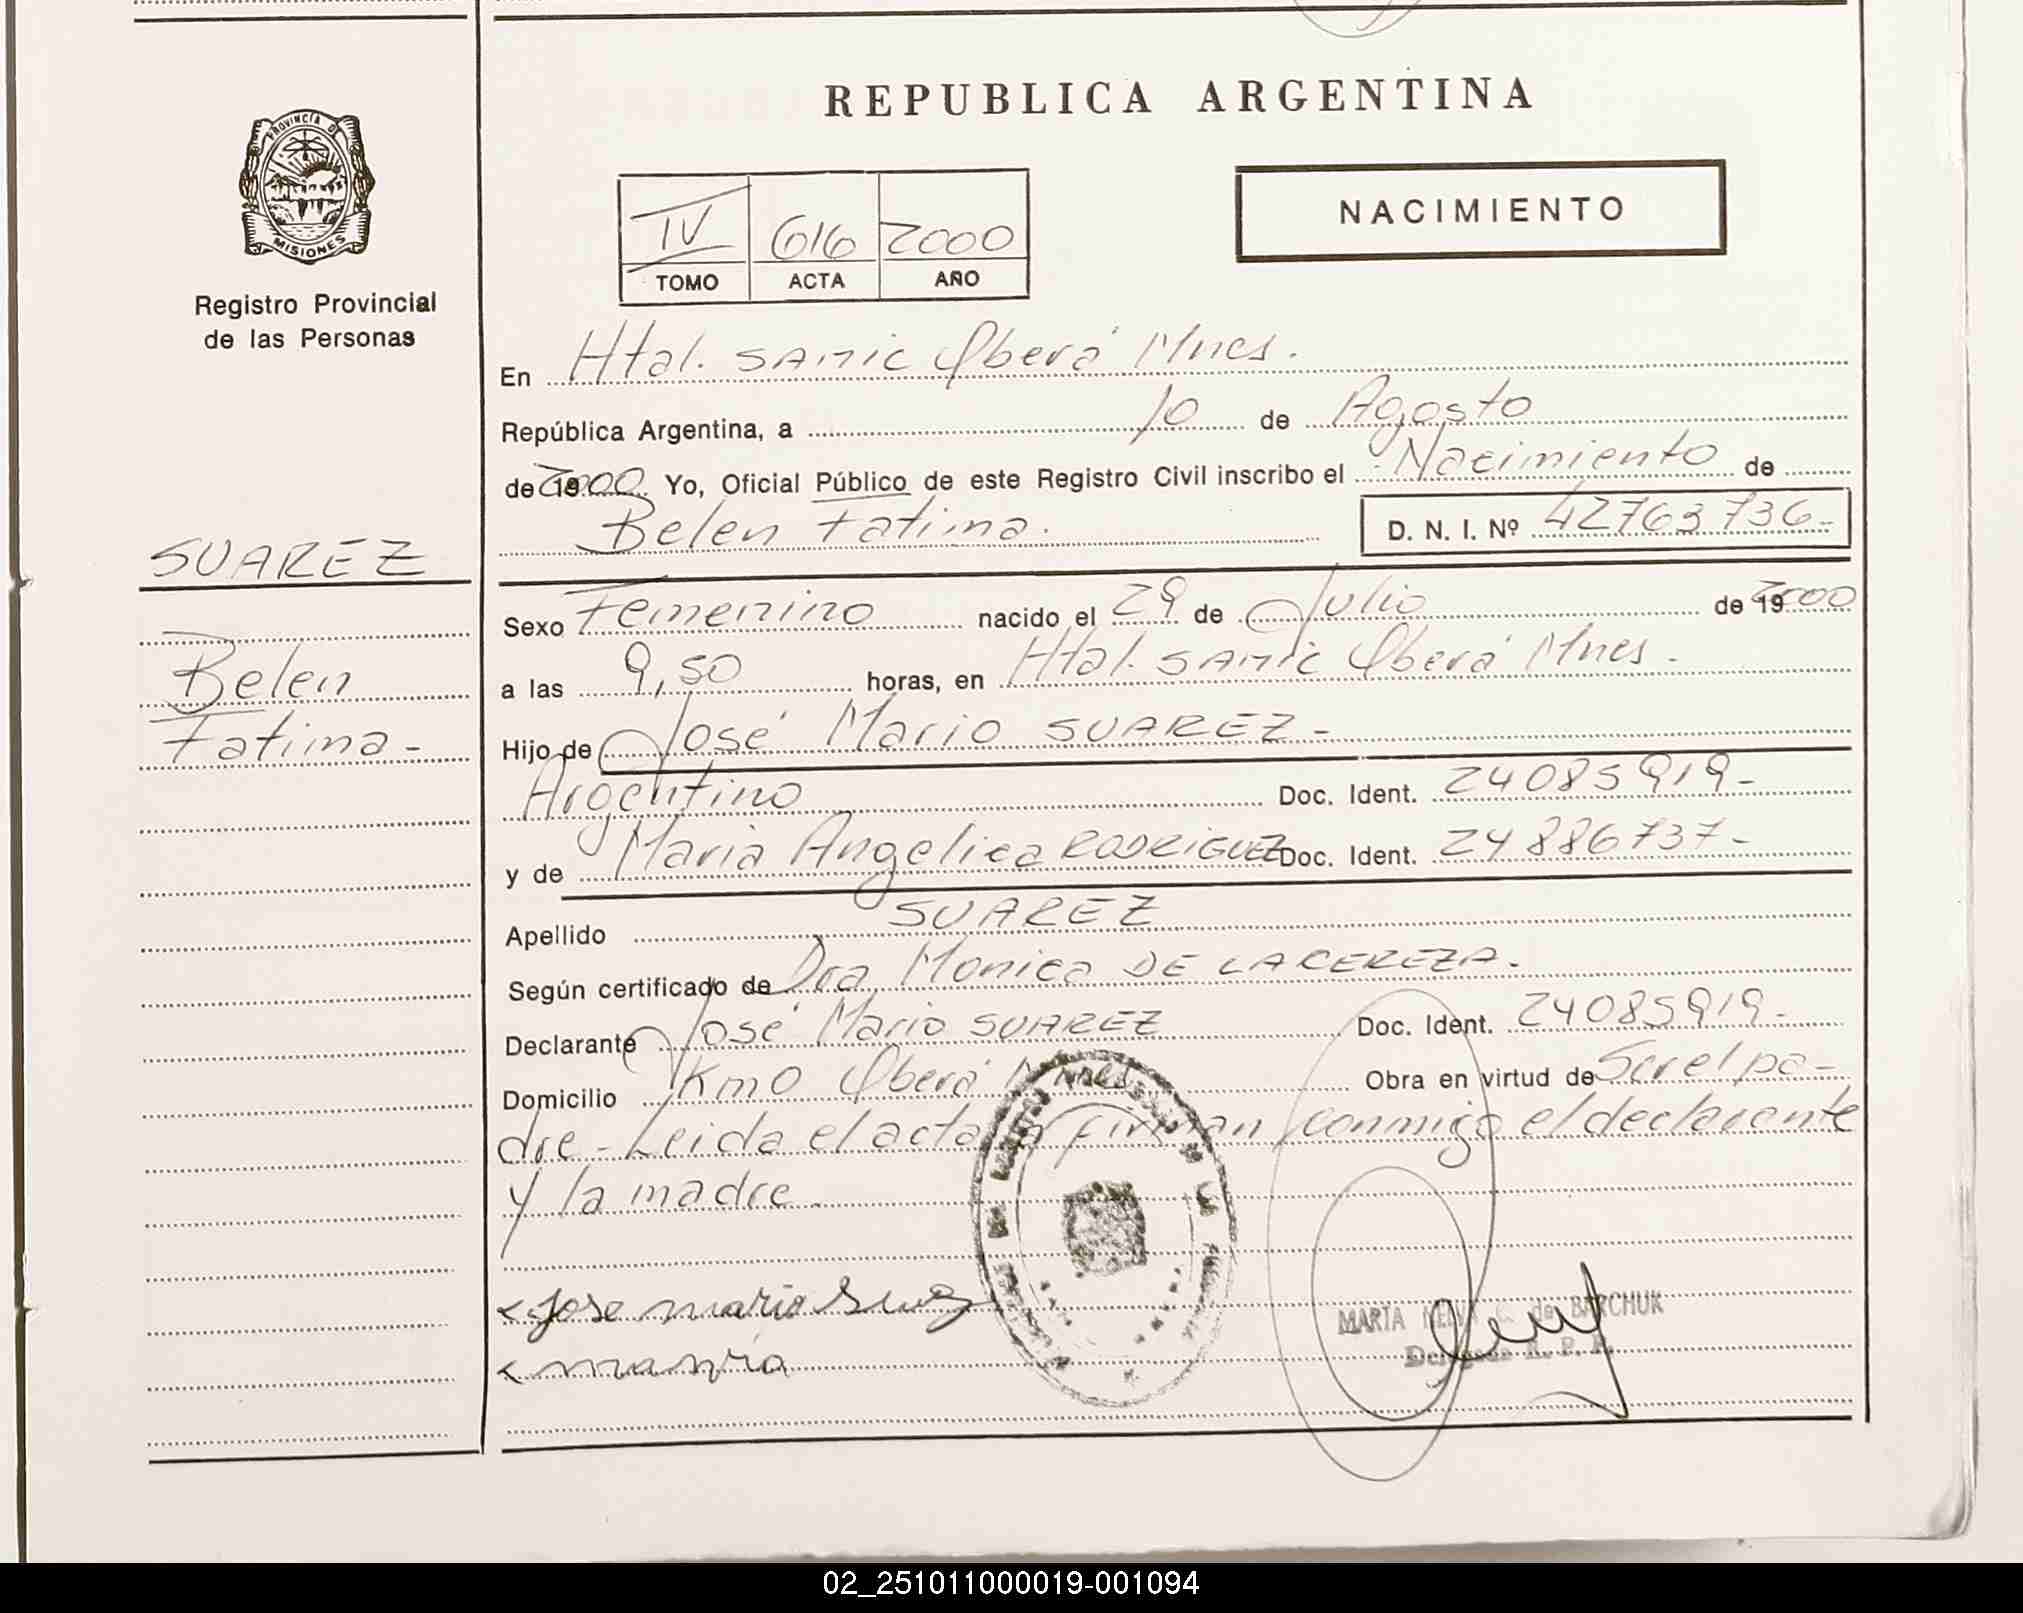 REPUBLICA ARGENTINA
PROVINCIA DE
MISIONES
Registro Provincial
de las Personas
IV 616 2000
TOMO ACTA AÑO
NACIMIENTO
En Htal. SAMIC Oberá Mnes.
República Argentina, a 10 de Agosto
de 2000 Yo, Oficial Público de este Registro Civil inscribo el Nacimiento de
Belen Fatima. D. N. I. Nº 42763736-
SUAREZ
Belen
Fatima-
Sexo Femenino nacido el 29 de Julio de 19 2000
a las 9,50 horas, en Htal. SAMIC Oberá Mnes.
Hijo de José Mario SUAREZ-
Argentino Doc. Ident. 24085919-
y de Maria Angelica RODRIGUEZ Doc. Ident. 24886737-
Apellido SUAREZ
Según certificado de Dra Monica DE LA CEREZA.
Declarante José Mario SUAREZ Doc. Ident. 24085919-
Domicilio Km0 Oberá Mnes Obra en virtud de Ser el pa-
dre- Leida el acta la firman conmigo el declarante
y la madre.
Jose mario
MARTA de BARCHUK
Delegada R. P. P.
02_251011000019-001094